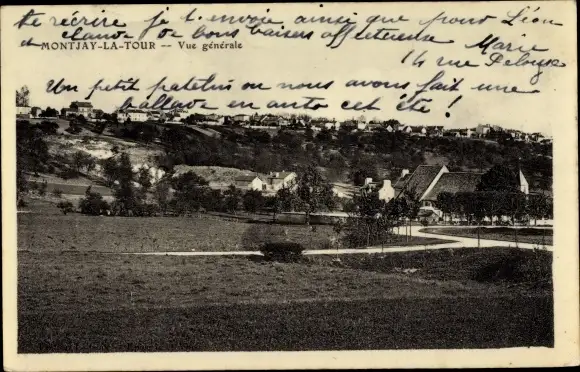 te récrire je t'envoie ainsi que pour Léon
et claude de bons baisers affectueux
Marie
14 rue Pelouze
MONTJAY-LA-TOUR - Vue générale
Un petit patelin ou nous avons fait une
ballade en auto cet été !